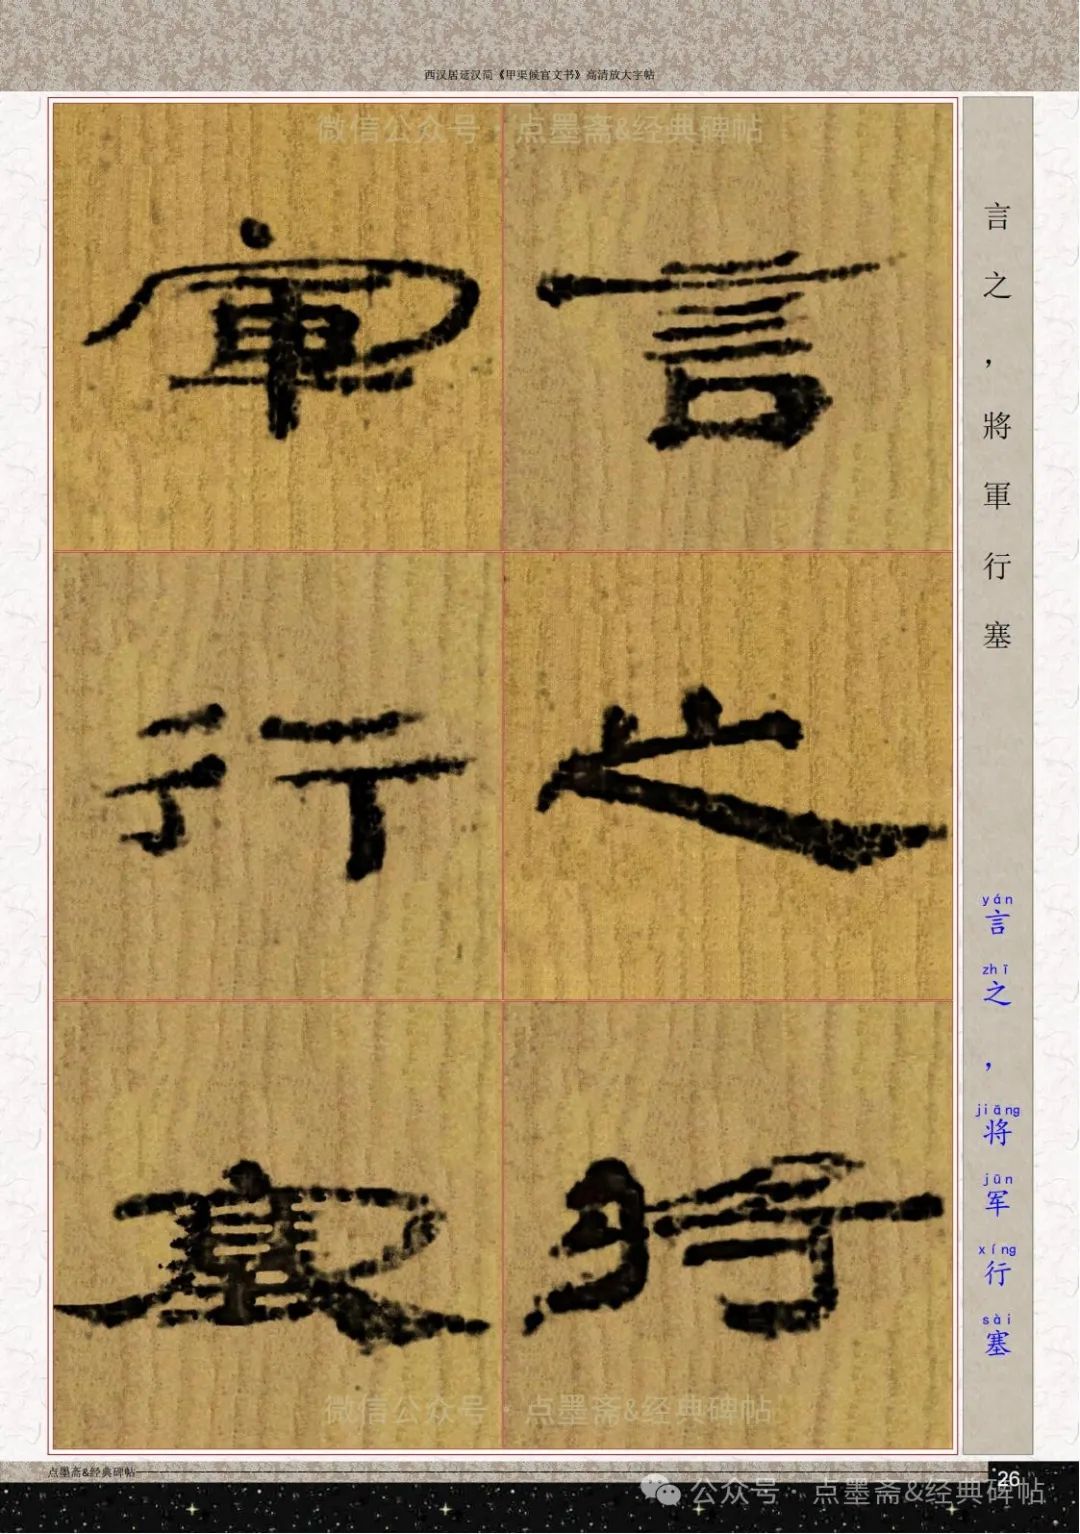 西汉居延汉简《甲渠候官文书》高清放大字帖
微信公众号·点墨斋&经典碑帖
言
之
將
軍
行
塞
言之，將軍行塞
yán zhī jiāng jūn xíng sài
言之，将军行塞
微信公众号·点墨斋&经典碑帖
点墨斋&经典碑帖
26
公众号·点墨斋&经典碑帖